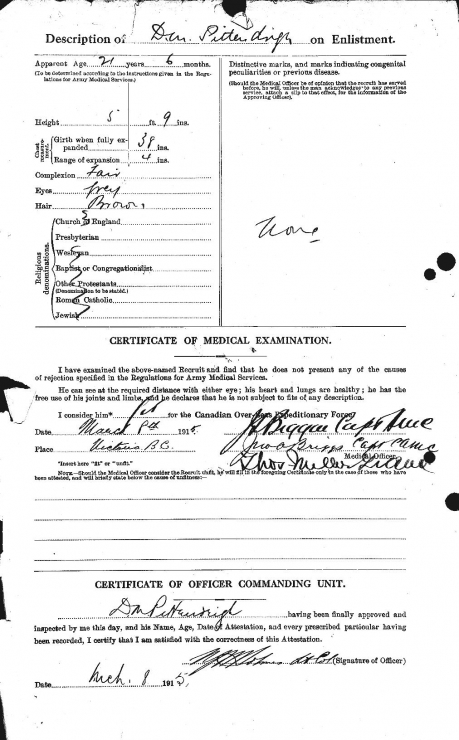 Description of D.M. Pittendrigh on Enlistment.
Apparent Age 21 years 6 months.
(To be determined according to the instructions given in the Regulations for Army Medical Services.)
Height 5 ft. 9 ins.
Chest measurement.
Girth when fully expanded 38 ins.
Range of expansion 4 ins.
Complexion Fair
Eyes Grey
Hair Brown
Religious denominations.
Church of England
Presbyterian
Wesleyan
Baptist or Congregationalist
Other Protestants
(Denomination to be stated.)
Roman Catholic
Jewish
Distinctive marks, and marks indicating congenital
peculiarities or previous disease.
(Should the Medical Officer be of opinion that the recruit has served
before, he will, unless the man acknowledges to any previous
service, attach a slip to that effect, for the information of the
Approving Officer).
None
CERTIFICATE OF MEDICAL EXAMINATION.
I have examined the above-named Recruit and find that he does not present any of the causes
of rejection specified in the Regulations for Army Medical Services.
He can see at the required distance with either eye; his heart and lungs are healthy; he has the
free use of his joints and limbs, and he declares that he is not subject to fits of any description.
I consider him* Fit for the Canadian Over-Seas Expeditionary Force.
Date March 8th 1915.
Place Victoria B.C.
Capt
Capt CAMC
Thos Miller
Medical Officer.
*Insert here "fit" or "unfit."
NOTE.—Should the Medical Officer consider the Recruit unfit, he will fill in the foregoing Certificate only in the case of those who have
been attested, and will briefly state below the cause of unfitness:—
CERTIFICATE OF OFFICER COMMANDING UNIT.
D M Pittendrigh having been finally approved and
inspected by me this day, and his Name, Age, Date of Attestation, and every prescribed particular having
been recorded, I certify that I am satisfied with the correctness of this Attestation.
Lt Col (Signature of Officer)
Date Mch. 8 1915.